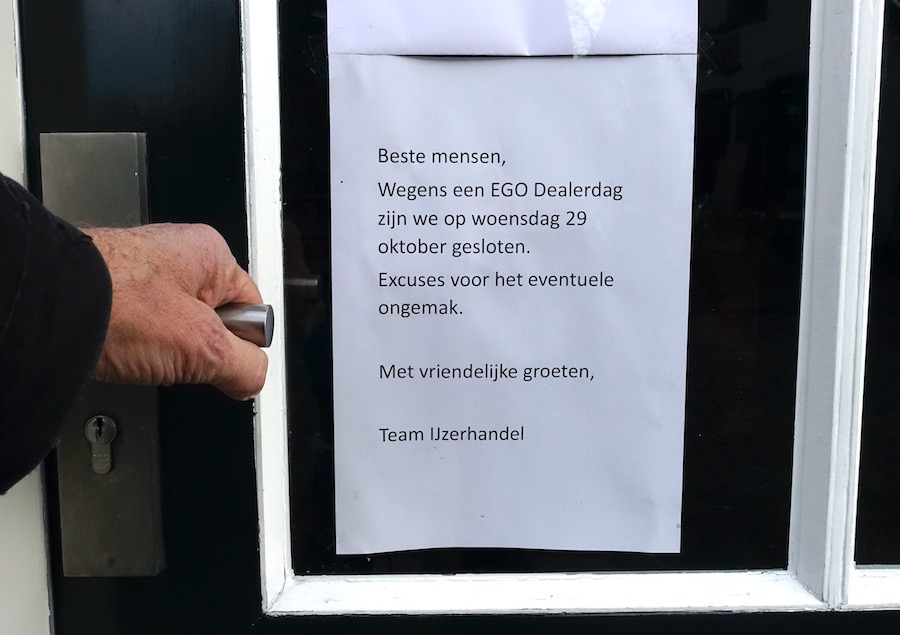 Beste mensen,
Wegens een EGO Dealerdag
zijn we op woensdag 29
oktober gesloten.
Excuses voor het eventuele
ongemak.
Met vriendelijke groeten,
Team IJzerhandel